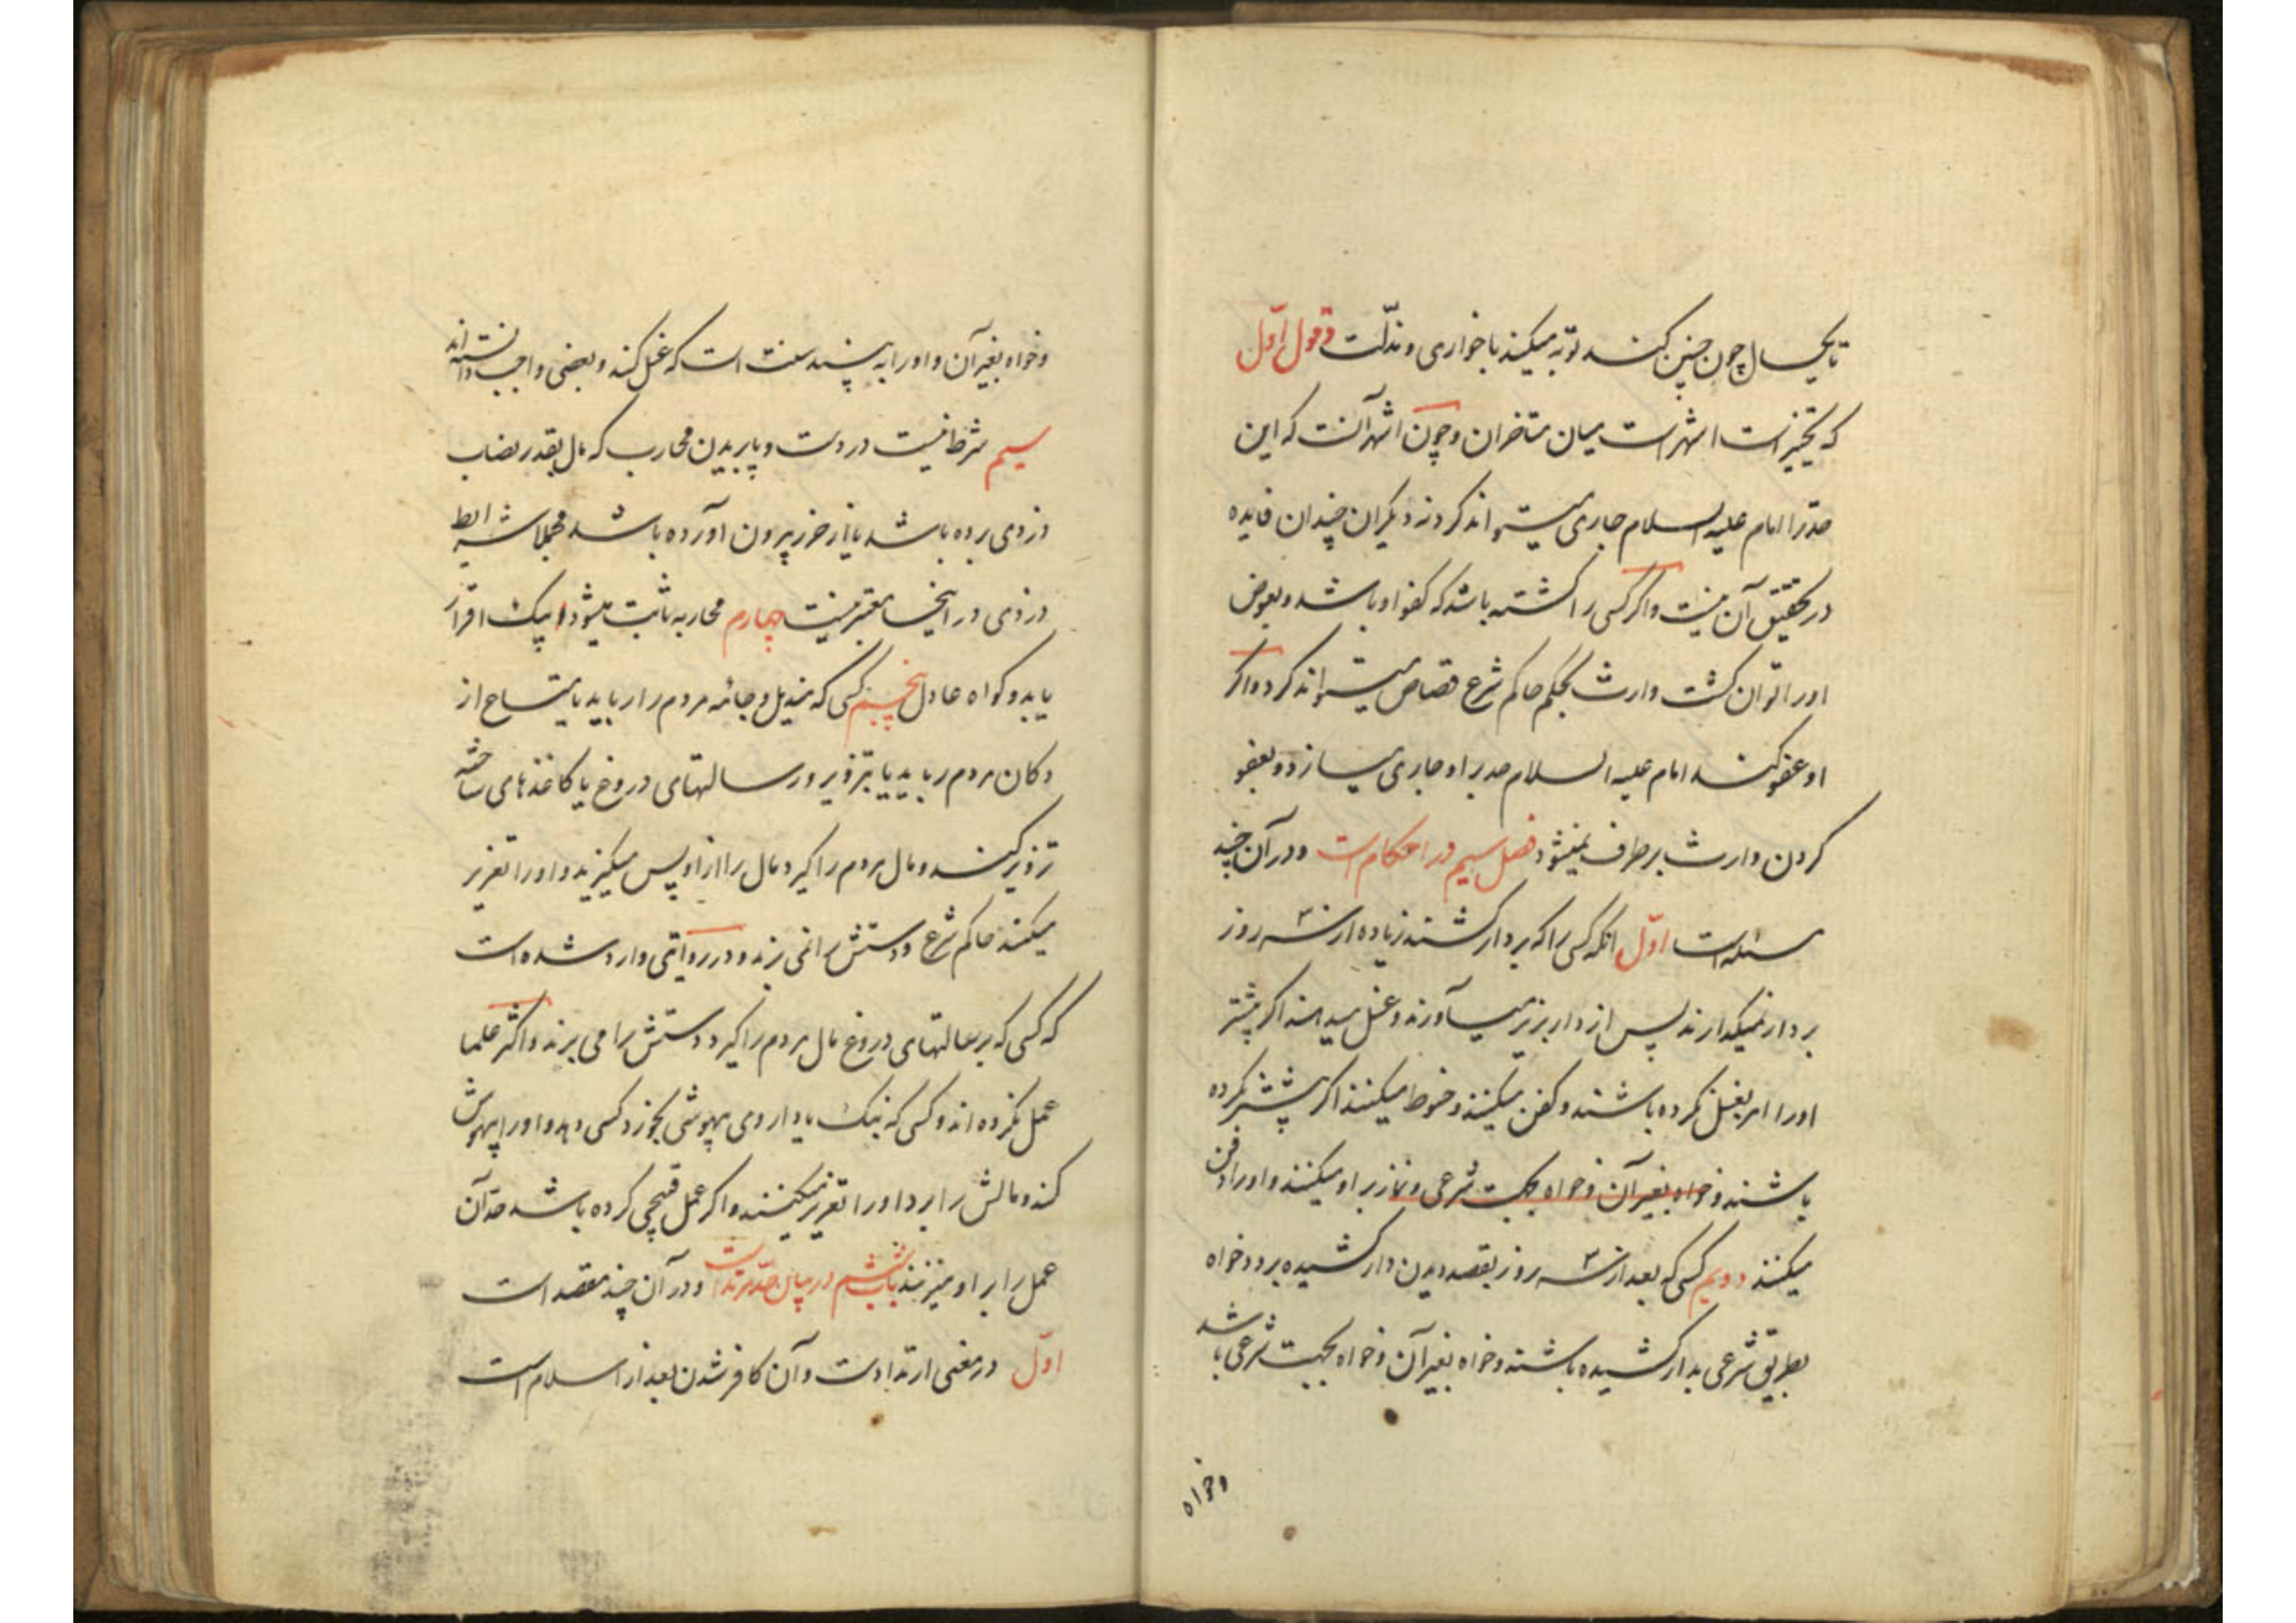 تا یکسال چون چنین کنند توبه میکند با خواری و مذلّت و قول اوّل
که تخییر است اشهر است میان متأخران و چون اشهر آنست که این
حدّ را امام علیه السلام جاری میتواند کرد نه دیگران چندان فایده
در تحقیق آن نیست و اگر کسی را کشته باشد که کفو او باشد و بعوض
او را توان کشت وارث بحکم حاکم شرع قصاص میتواند کرد و اگر
او عفو کند امام علیه السلام حد بر او جاری میسازد و بعفو
کردن وارث بر طرف نمیشود فصل سیم در احکام است و در آن چند
مسئله است اوّل انکه کسی را که بر دار کشند زیاده از سه روز
بر دار نمیگذارند پس از دار بزیر میآورند و غسل میدهند اگر پیشتر
او را امر بغسل نکرده باشند و کفن میکنند و حنوط میکنند اگر پیشتر نکرده
باشند و خواه بغیر آن و خواه بجهت شرعی و نماز بر او میکنند و او را دفن
میکنند دویم کسی که بعد از سه روز بقصد دیدن دار کشیده برود خواه
بطریق شرعی بدار کشیده باشند و خواه بغیر آن و خواه بجهت شرعی باشد
وخواه
وخواه بغیر آن و او را به بیند سنت است که غسل کند و بعضی واجب دانسته اند
سیم شرط نیست در دست و پا بریدن محارب که مال بقدر نصاب
دزدی برده باشد یا از حرز بیرون آورده باشد مجملا شرایط
دزدی در اینجا معتبر نیست چهارم محاربه ثابت میشود بیک اقرار
یا بدو گواه عادل پنجم کسی که مندیل و جامه مردم را رباید یا متاع از
دکان مردم رباید یا بتزویر و رسالتهای دروغ یا کاغذهای ساخته
تزویر کند و مال مردم را گیرد مال را از او پس میگیرند و او را تعزیر
میکند حاکم شرع و دستش را نمی برند و در روایتی وارد شده است
که کسی که برسالتهای دروغ مال مردم را گیرد دستش را می برند و اکثر علما
عمل نکرده اند و کسی که بنک یا داروی بیهوشی بخورد کسی دهد و او را بیهوش
کند و مالش را برد او را تعزیر میکنند و اگر عمل قبیحی کرده باشد حدّ آن
عمل را بر او میزنند باب ششم در بیان حدّ مرتد است و در آن چند مقصد است
اوّل در معنی ارتداد است و آن کافر شدن بعد از اسلام است